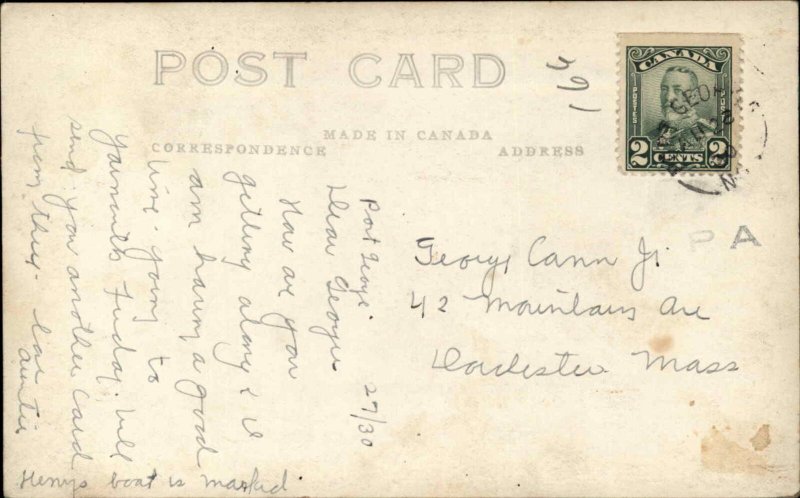 POST CARD
MADE IN CANADA
CORRESPONDENCE
ADDRESS
CANADA
POSTES
POSTES
2 CENTS 2
391
P A
Port
27/30
Dear George
How are you
getting along &
am having a good
time. going to
Yarmouth Friday. Will
send you another card
from there. Love
Auntie
Henrys boat is marked
George Cann Jr
42 Mountain Ave
Dorchester Mass